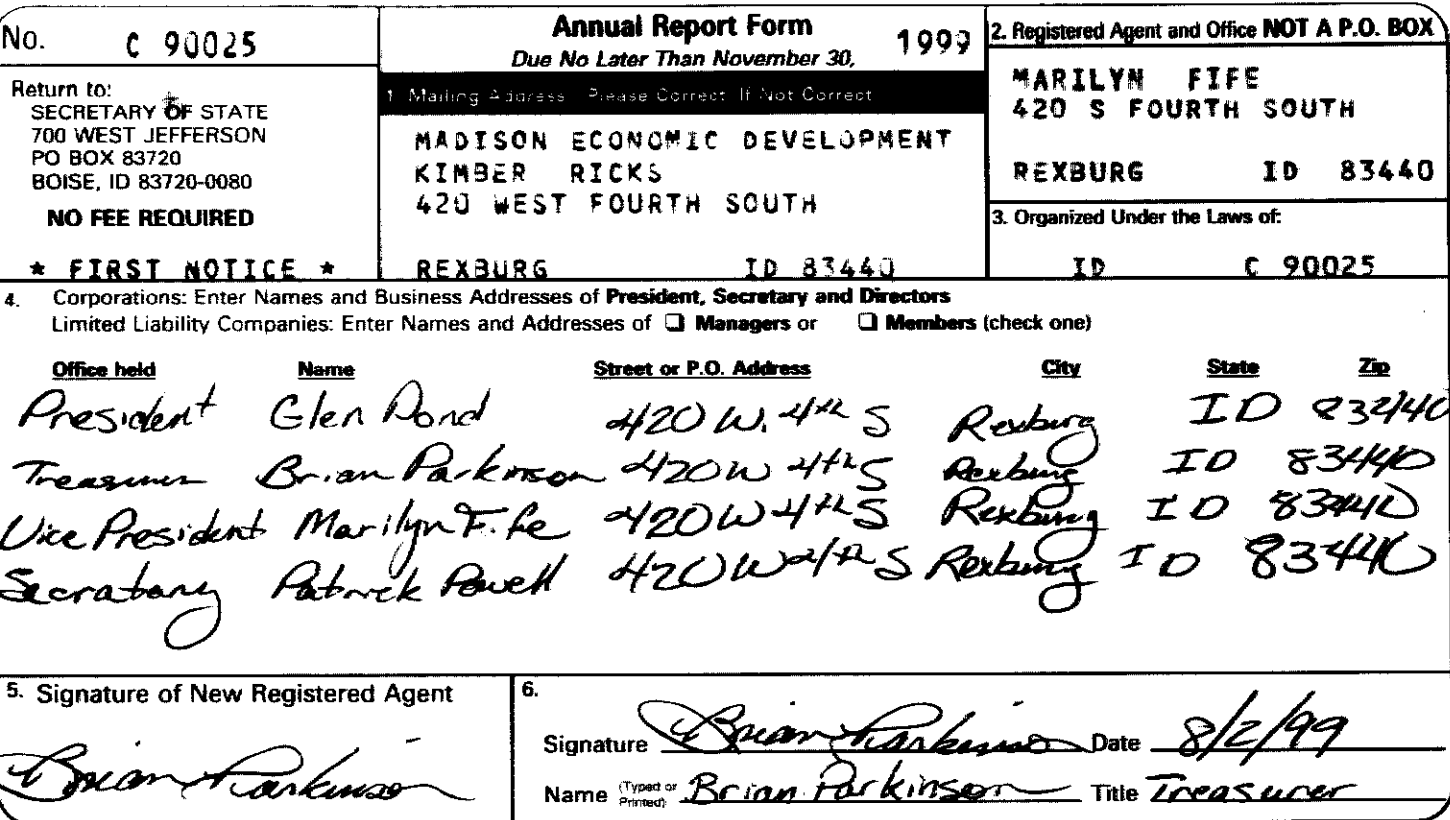 No. C 90025
Return to:
SECRETARY OF STATE
700 WEST JEFFERSON
PO BOX 83720
BOISE, ID 83720-0080
NO FEE REQUIRED
* FIRST NOTICE *
Annual Report Form 1999
Due No Later Than November 30,
1. Mailing Address Please Correct If Not Correct
MADISON ECONOMIC DEVELOPMENT
KIMBER RICKS
420 WEST FOURTH SOUTH
REXBURG ID 83440
2. Registered Agent and Office NOT A P.O. BOX
MARILYN FIFE
420 S FOURTH SOUTH
REXBURG ID 83440
3. Organized Under the Laws of:
ID C 90025
4. Corporations: Enter Names and Business Addresses of President, Secretary and Directors
Limited Liability Companies: Enter Names and Addresses of ❑ Managers or ❑ Members (check one)
Office held Name Street or P.O. Address City State Zip
President Glen Pond 420 W. 4th S Rexburg ID 83440
Treasurer Brian Parkinson 420 W 4th S Rexburg ID 83440
Vice President Marilyn Fife 420 W 4th S Rexburg ID 83440
Secratary Patrick Powell 420 W 4th S Rexburg ID 83440
5. Signature of New Registered Agent
Brian Parkinson
6.
Signature Brian Parkinson Date 8/2/99
Name (Typed or Printed) Brian Parkinson Title Treasurer